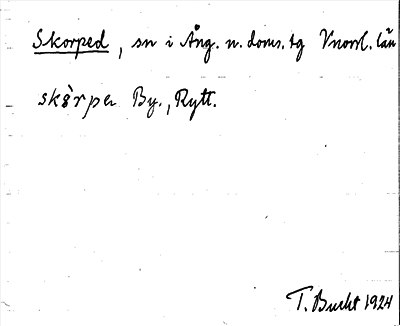 Skorped, sn i Ång. n. doms. tg Vnorrl. län
skòrpen By., Rytt.
T. Bucht 1924